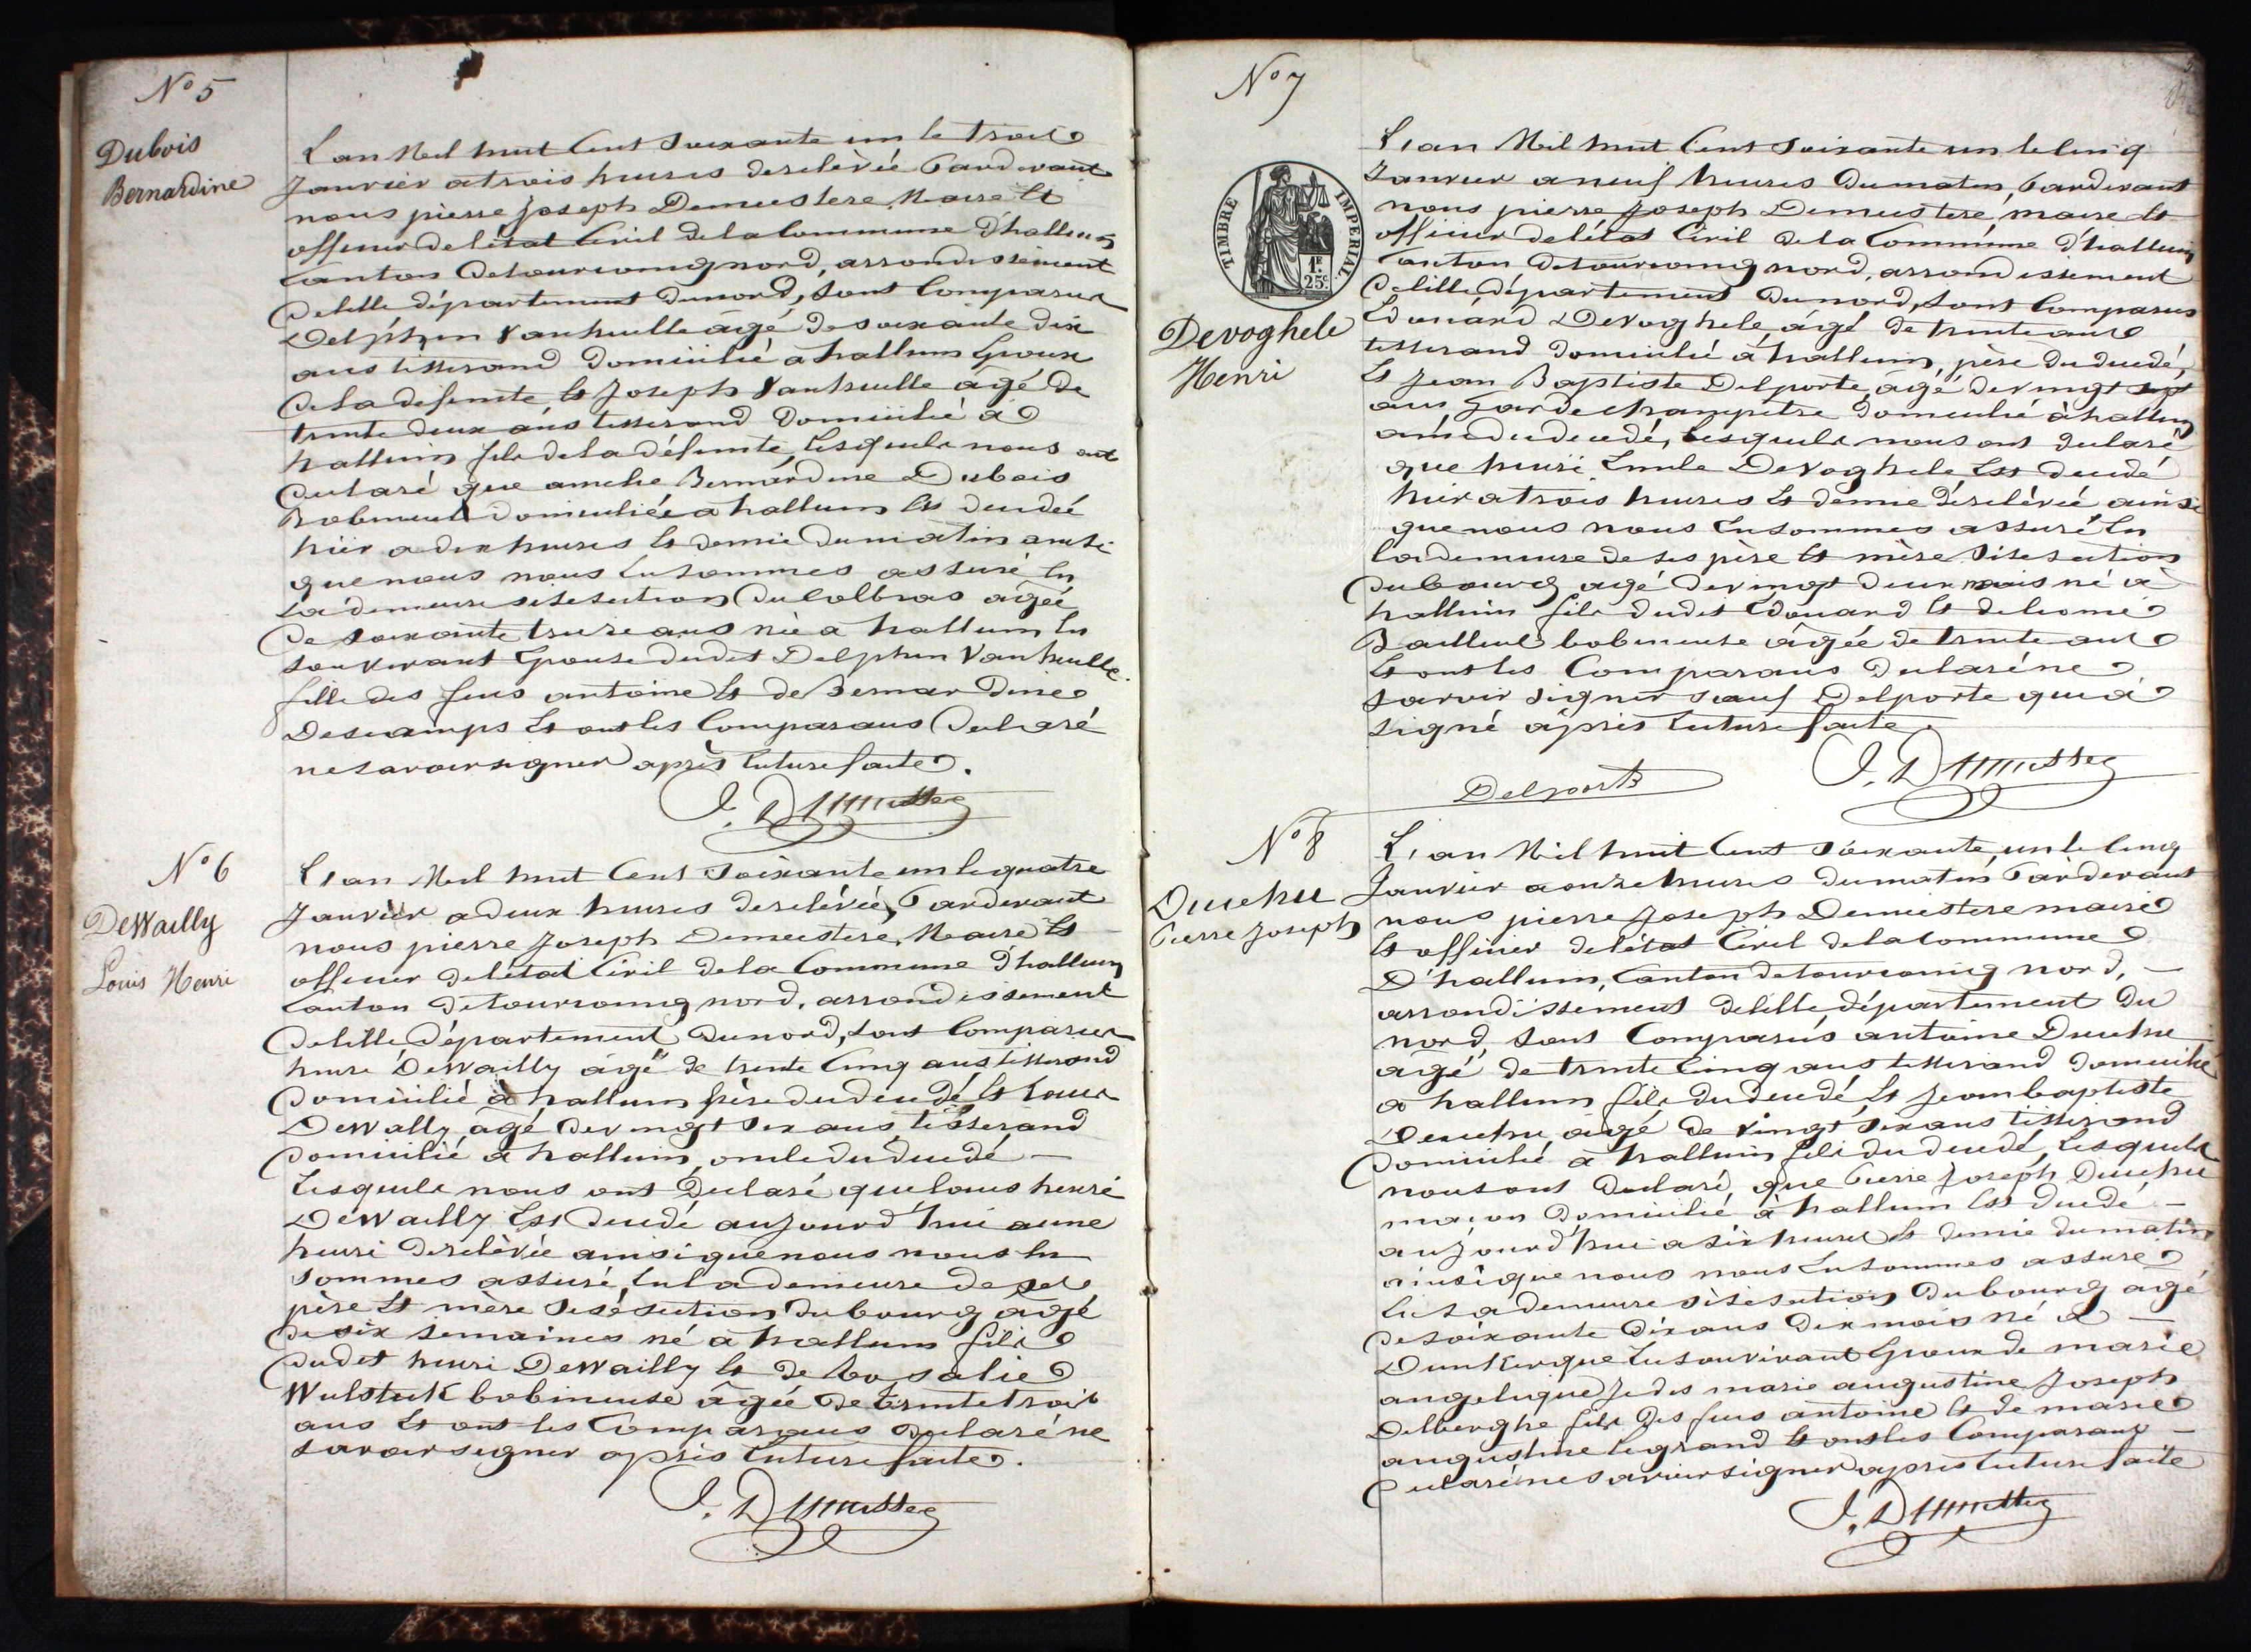 N° 5
Dubois
Bernardine
L'an Mil huit Cent Soixante un le trois
Janvier a trois heures de relévée Pardevant
nous pierre Joseph Demeestere, Maire Et
officier de l'état Civil de la Commune d'halluin
Canton de tourcoing nord, arrondissement
de lille département du nord, sont Comparus
Delphin Vanhuille âgé de soixante dix
ans tisserand domicilié a halluin Epoux
de la défunte Et Joseph Vanhuille âgé de
trente deux ans tisserand domicilié à
halluin fils de la défunte, lesquels nous ont
declaré que Bernardine Dubois
Bobineuse domiciliée a halluin Est decedée
hier a dix heures Et demie du matin ainsi
que nous nous En sommes assuré En
sa demeure sise section du Colbras âgée
de soixante treize ans née a halluin En
son vivant Epouse dudit Delphin Vanhuille.
fille des feus antoine Et de Bernardine
Descamps Et ont les Comparans declaré
ne savoir signer après lecture faite.
J. Demeestere
N° 6
DeWailly
Louis Henri
L'an Mil huit Cent Soixante un le quatre
Janvier a deux heures de relévée, Pardevant
nous pierre Joseph Demeestere, Maire Et
officier de l'état Civil de la Commune d'halluin
Canton de tourcoing nord, arrondissement
de lille département du nord, sont Comparus
henri DeWailly âgé de trente Cinq ans tisserand
domicilié à halluin père du decedé Et Louis
DeWally, âgé de vingt six ans tisserand
domicilié a halluin oncle du decedé —
Lesquels nous ont Declaré que louis henri
DeWailly Est decedé aujourd'hui a une
heure de relévée ainsi que nous nous En
sommes assuré, En la demeure de ses
père Et mère sise section du bourg âgé
de six semaines né a halluin fils
dudit henri DeWailly Et de Rosalie
Wulstek bobineuse âgée de trente trois
ans Et ont les Comparans declaré ne
savoir signer après lecture faite.
J. Demeestere
N° 7
TIMBRE IMPERIAL
1F
25c
Devoghele
Henri
L'an Mil huit Cent Soixante un le cinq
Janvier a neuf heures du matin, Pardevant
nous pierre Joseph Demeestere, maire Et
officier de l'état Civil de la Commune d'halluin
Canton de tourcoing nord, arrondissement
de lille département du nord, sont Comparus
Edouard Devoghele, âgé de trente ans
tisserand domicilié à halluin, père du decedé,
Et Jean Baptiste Delporte, âgé de vingt sept
ans, Garde champêtre domicilié à halluin
ami du decedé, Lesquels nous ont declaré
que henri Emile Devoghele Est decedé
hier a trois heures Et demie de relévée ainsi
que nous nous En sommes assuré En
la demeure de ses père Et mère sise section
du bourg âgé de vingt deux mois né à
halluin fils dudit Edouard Et de
Bailleul bobineuse âgée de trente ans
Et ont les Comparans declaré ne
savoir signer sauf Delporte qui a
signé après lecture faite.
Delporte J. Demeestere
N° 8
Duuhu
Pierre Joseph
L'an Mil huit Cent Soixante, un le Cinq
Janvier a onze heures du matin Pardevant
nous pierre Joseph Demeestere maire
Et officier de l'état Civil de la Commune
D'halluin, Canton de tourcoing nord, —
arrondissement de lille, département du
nord, sont Comparus antoine
âgé de trente cinq ans tisserand domicilié
a halluin fils du decedé, Et Jean baptiste
âgé de vingt six ans tisserand
domicilié à halluin fils du decedé, Lesquels
nous ont declaré que Pierre Joseph
maçon Domicilié à halluin Est decedé —
aujourd'hui a six heures Et demie du matin
ainsi que nous nous En sommes assuré
En sa demeure sise section du bourg âgé
de soixante dix ans dix mois né a —
Dunkerque En son vivant Epoux de marie
angelique marie augustine Joseph
Delberghe fils des feus antoine Et de marie
augustine legrand Et ont les Comparans —
declaré ne savoir signer après lecture faite
J. Demeestere